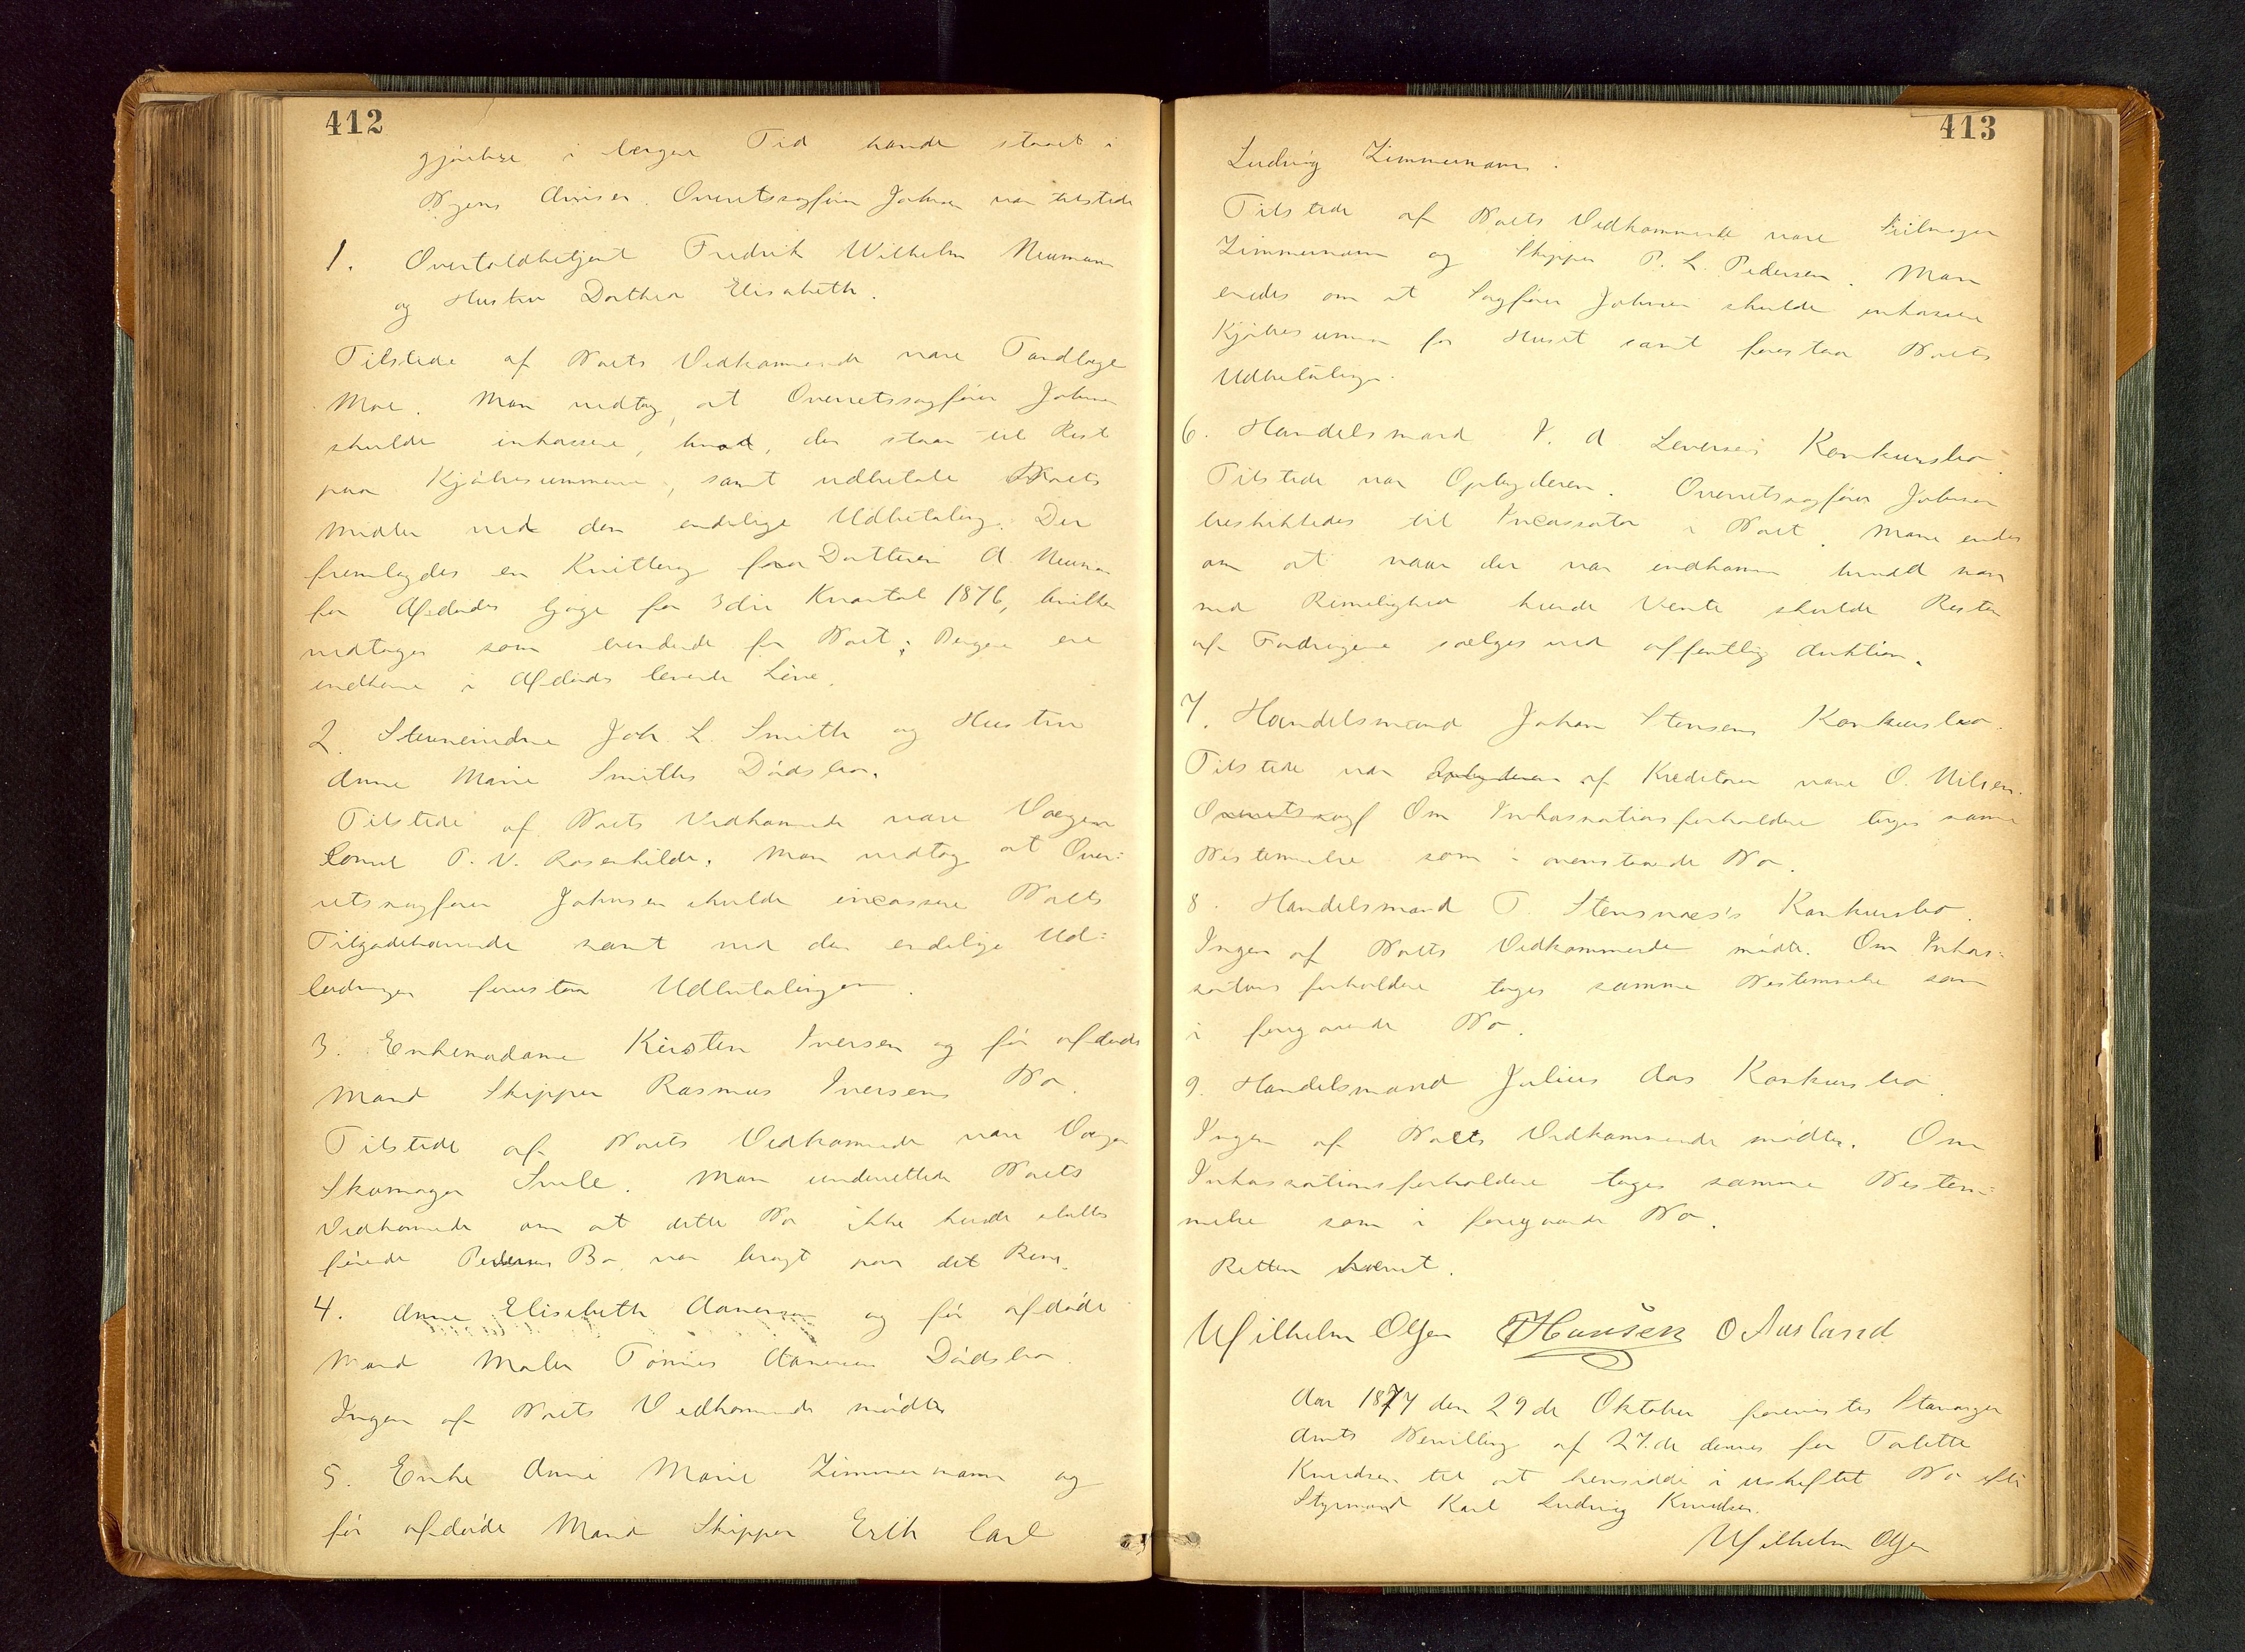 412
gjørelse i længere Tid havde staaet i
Byens Aviser. Overretssagfører Johnsen var tilstede
1. Overtoldbetjent Fredrik Wilhelm Neumann
og Hustru Dorthea Elisabeth.
Tilstede af Boets Vedkommende vare Tandlæge
Moe. Man vedtog at Overretssagfører Johnsen
skulde inkassere, hvad der staar til Rest
paa Kjøbesummen, samt udbetale Boets
Midler ved den endelige Udbetaling. Der
fremlagdes en Kvittering fra Datteren A. Neumann
for Afdødes Gage for 3die Kvartal 1876, hvilken
vedtoges som bindende for Boet; Pengene ere
indkomne i Afdødes levende Live.
2. Styrmand Joh. L. Smith og Hustru
Anne Marie Smiths Dødsbo.
Tilstede af Boets Vedkommende vare Værgen
Consul P. V. Rosenkilde. Man vedtog at Over-
retssagfører Johnsen skulde incassere Boets
Tilgodehavende samt ved den endelige Ud-
lodningen forestaa Udbetalingen.
3. Enkemadame Kirsten Iversen og før afdøde
Mand Skipper Rasmus Iversens Bo.
Tilstede af Boets Vedkommende vare Værgen
Skomager Svele. Man underrettede Boets
Vedkommende om at dette Bo ikke kunde sluttes
førend Pedersens Bo var bragt paa det Rene.
4. Anne Elisabeth Aanensen og før afdøde
Mand Maler Tønnes Aanensens Dødsbo.
Ingen af Boets Vedkommende mødte
5. Enke Anne Marie Zimmermann og
før afdøde Mand Skipper Erik Carl
413
Ludvig Zimmermann.
Tilstede af Boets Vedkommende vare Seilmager
Zimmermann og Skipper P. L. Pedersen. Man
enedes om at Sagfører Johnsen skulde inkassere
Kjøbesummen for Huset samt forestaa Boets
Udbetaling.
6. Handelsmand I. A. Leversens Konkursbo.
Tilstede var Opbyderen. Overretssagfører Johnsen
beskikkedes til Incassator i Boet. Man enedes
om at naar der var indkommen hvad man
med Rimelighed kunde vente skulde Resten
af Fordringerne sælges ved offentlig Auktion.
7. Handelsmand Johan Stensens Konkursbo.
Tilstede var Opbyderen af Kreditorer vare O. Nilsen.
Overretssagf Om Inkassationsforholdene toges samme
Bestemmelse som i ovenstaaende Bo.
8. Handelsmand T. Stensnæs's Konkursbo.
Ingen af Boets Vedkommende mødte. Om Inkas-
sationsforholdene toges samme Bestemmelse som
i foregaaende Bo.
9. Handelsmand Julius Aas Konkursbo
Ingen af Boets Vedkommende mødte. Om
Inkassationsforholdene toges samme Bestem-
melse som i foregaaende Bo.
Retten hævet.
Wilhelm Olsen THansen O Ausland
Aar 1877 den 29de Oktober forevistes Stavanger
Amts Bevilling af 27.de dennes for Torbette
Knudsen til at hensidde i uskiftet Bo efter
Styrmand Karl Ludvig Knudsen.
Wilhelm Olsen